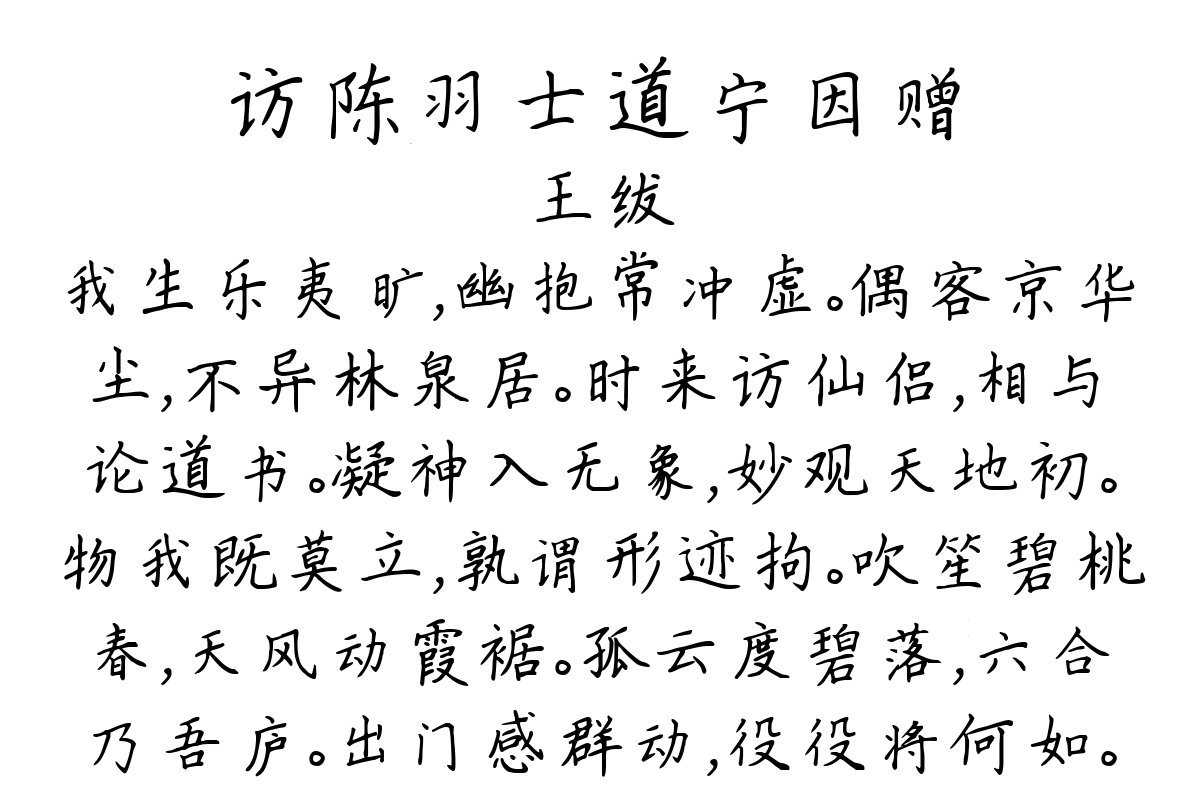 访陈羽士道宁因赠
王绂
我生乐夷旷,幽抱常冲虚。偶客京华
尘,不异林泉居。时来访仙侣,相与
论道书。凝神入无象,妙观天地初。
物我既莫立,孰谓形迹拘。吹笙碧桃
春,天风动霞裾。孤云度碧落,六合
乃吾庐。出门感群动,役役将何如。